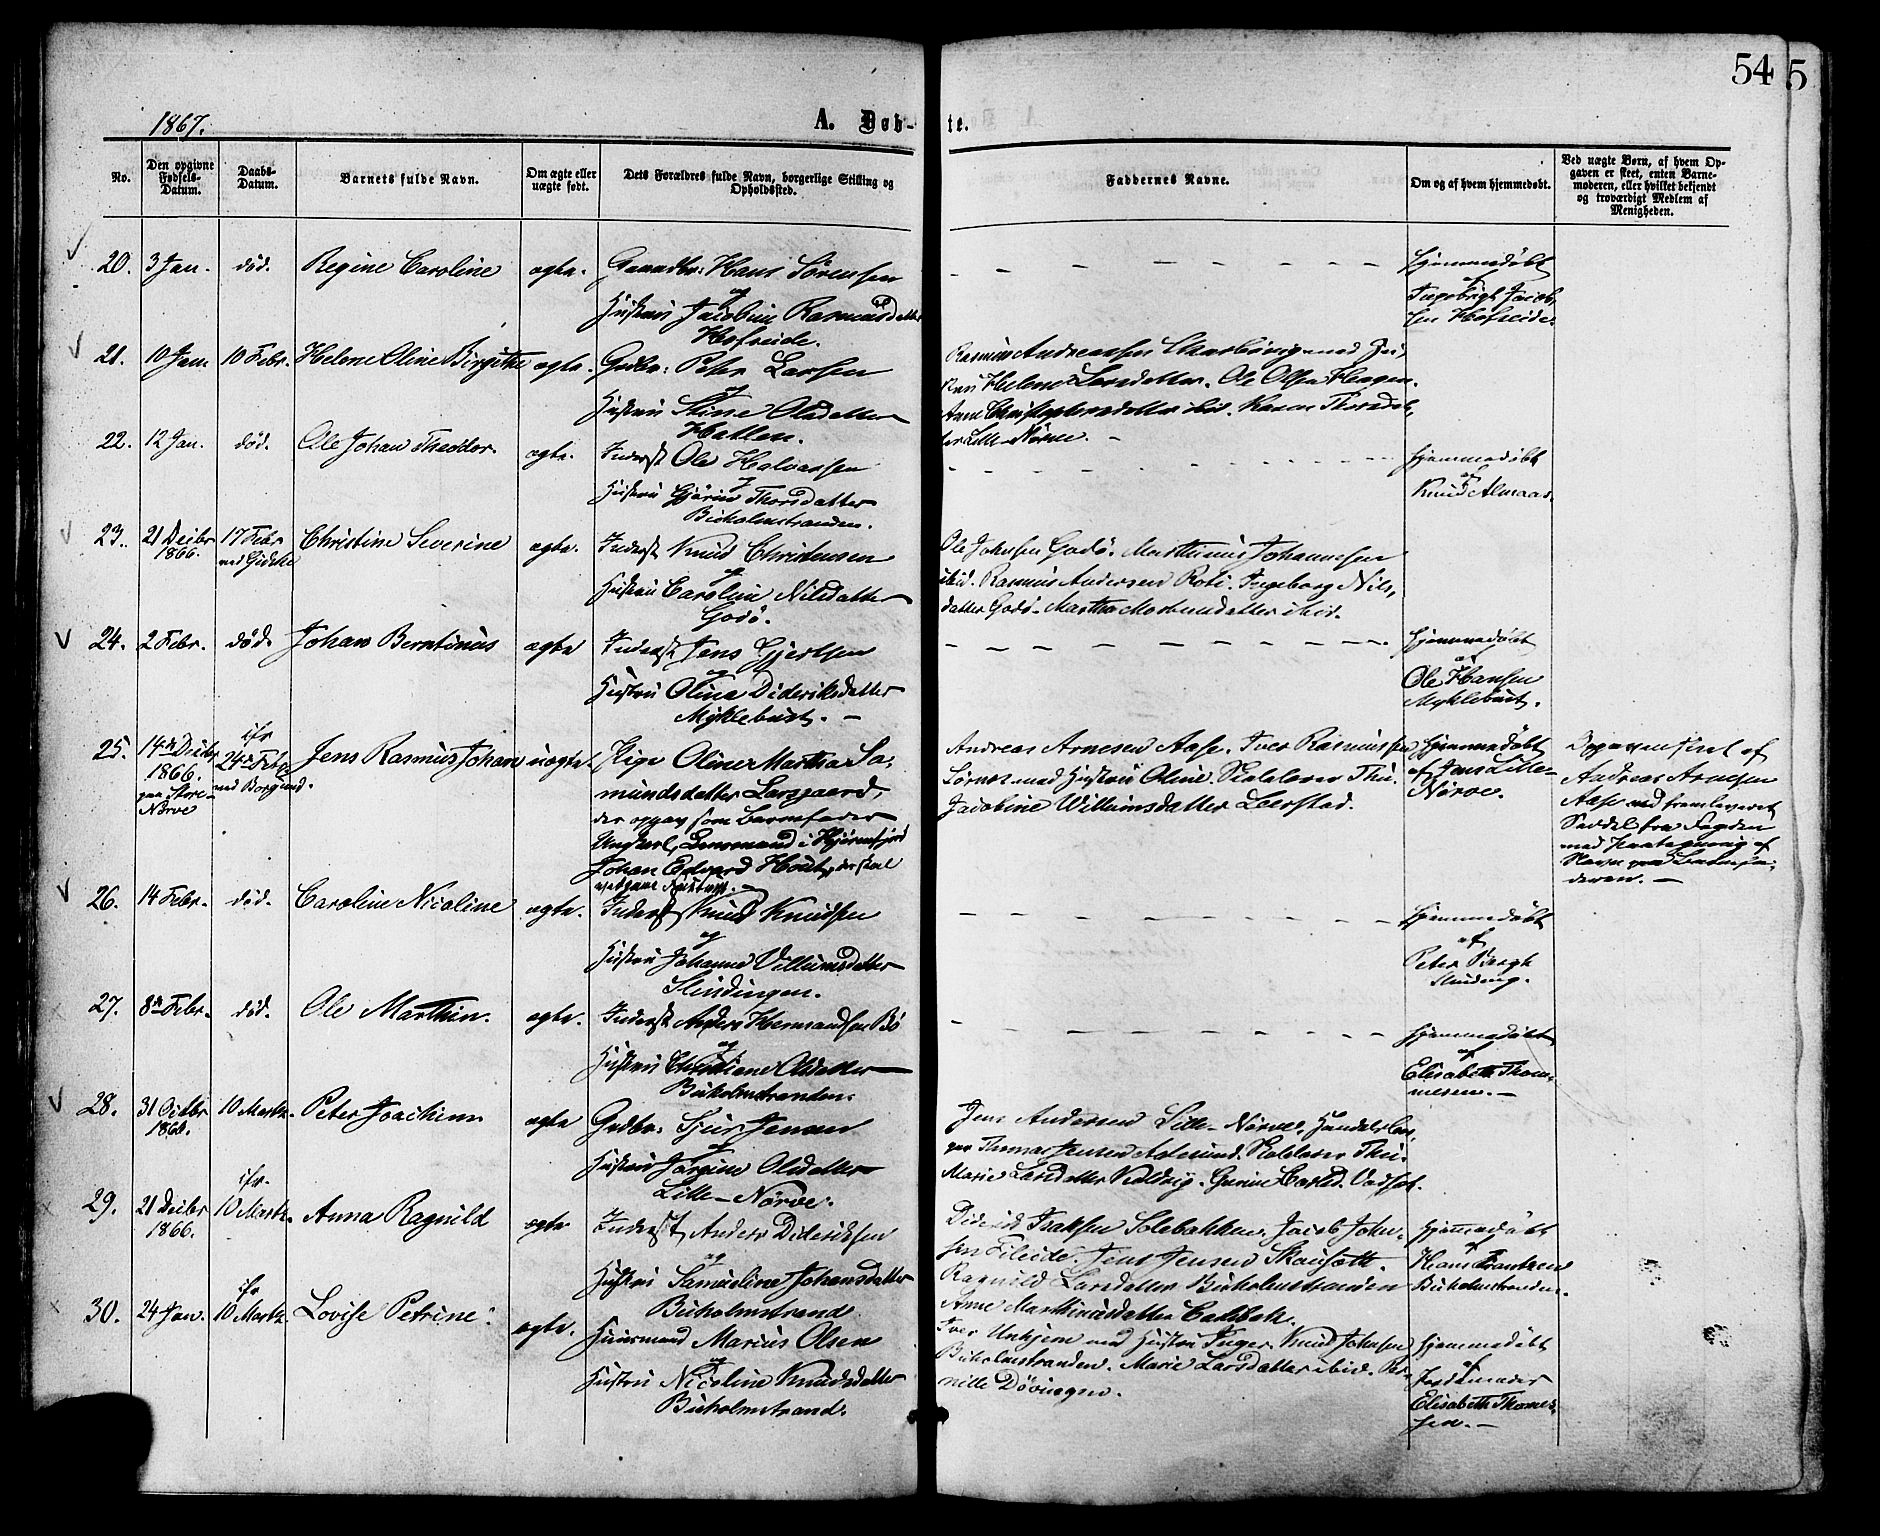 54
5
1867.
A. Døb-
te.
No.
Den opgivne
Fødsels-
Datum.
Daabs-
Datum.
Barnets fulde Navn.
Om ægte eller
uægte født.
Dets Forældres fulde Navn, borgerlige Stilling og
Opholdssted.
Faddernes Navne.
Om og af hvem hjemmedøbt.
Ved uægte Børn, af hvem Op-
gaven er skeet, enten Barne-
moderen, eller hvilket bekjendt
og troværdigt Medlem af
Menigheden.
20. 3 Jan. død. Regine Caroline ægte. Hans Sörensen
og
Hustru Jacobine Rasmusdatter
Hofseide.
Hjemmedøbt
af
Ingebrigt Jacob-
sen Hofseide.
21. 10 Jan. 10 Febr. Helene Oline Birgithe ægte. Grdbr: Peter Larsen
og
Hustru Stine Olsdatter
Hatlen.
Rasmus Andreassen med Hu-
stru Helene Larsdatter. Ole Olsen Hagen.
Anne Christophersdatter ibid. Karen Thorsdat-
ter Lille-Nörve. -
22. 12 Jan. død. Ole Johan Theodor. ægte. Inderst Ole Halvorsen
og
Hustru Gjörine Thorsdatter
Buholmstranden.
Hjemmedøbt
af
Knud Almaas.
23. 21 Decbr 17 Febr Christine Severine ægte. Inderst Knud Christensen
1866. ved Gidske
og
Hustru Caroline Nilsdatter
Godö.
Ole Johnsen Godö. Marthinus Johannesen
ibid. Rasmus Andersen Ingeborg Nils-
datter Godö. Martha ibid.
24. 2 Febr. død. Johan Berntinus ægte Inderst Jens Gjertsen
og
Hustru Olina Dideriksdatter
Myklebust. -
Hjemmedøbt
af
Ole Hansen
Myklebust.
25. 14de Decbr 24de Febr. Jens Rasmus Johan uægte. Pige Oline Martha Sa-
1866. ved Borgund.
paa Store-
Nörve
mundsdatter Larsgaard,
der opgav som Barnefader
Ungkarl, Lensmand i Hjörendfjord
Johan Edvard Hout, der skal

Andreas Arnesen Aase. Iver Rasmussen
Sörnes med Hustru Oline.
Jacobine Willumsdatter Leerstad.
Hjemmedøbt
af Jens Lille-
Nörve.
Opgaven skeet af
Andreas Arnesen
Aase med fremleveret
Seddel fra Fogden
med Paategning af
Navn paa Barnefa-
deren. -
26. 14 Febr. død. Caroline Nicoline ægte. Inderst Knud Knudsen
og
Hustru Johanne Villumsdatter
Slindingen.
Hjemmedøbt
af
Peter Bergh
Slinding.
27. 8de Febr. død. Ole Marthin. ægte. Inderst Anders Hermandsen Bö
og
Hustru Christiane Olsdatter
Buholmstranden.
Hjemmedøbt
af
Elisabeth Thom-
mesen. -
28. 31 Octbr 10 Marts. Peter Joachim ægte Grdbr: Sjur Jensen
1866.
og
Hustru Jörgine Olsdatter
Lille-Nörve.
Jens Andersen Lille-Nörve,
Thomas Jensen Aalesund.
Marie Larsdatter Veddevig. Gurine
29. 21 Decbr 10 Marts. Anna Ragnild ægte Inderst Anders Dideriksen
1866.
og
Hustru Samueline Johansdatter
Buholmstrand
Diderik Solebakken. Jacob John-
sen Jens Jensen
Ragnild Larsdatter Buholmstranden
Anne Marthinusdatter
Hjemmedøbt
af
Hans Frantzen
Buholmstranden.
30. 24 Jan. 10 Marts. Lovise Petrine. ægte. Huusmand Marius Olsen
og
Hustru Nicoline Knudsdatter
Buholmstrand.
Iver med Hustru Inger. Knud Johnsen
Buholmstranden. Marie Larsdatter ibid. Per-
nille
Hjemmedøbt
af
Jordemoder
Elisabeth Thome-
sen. -